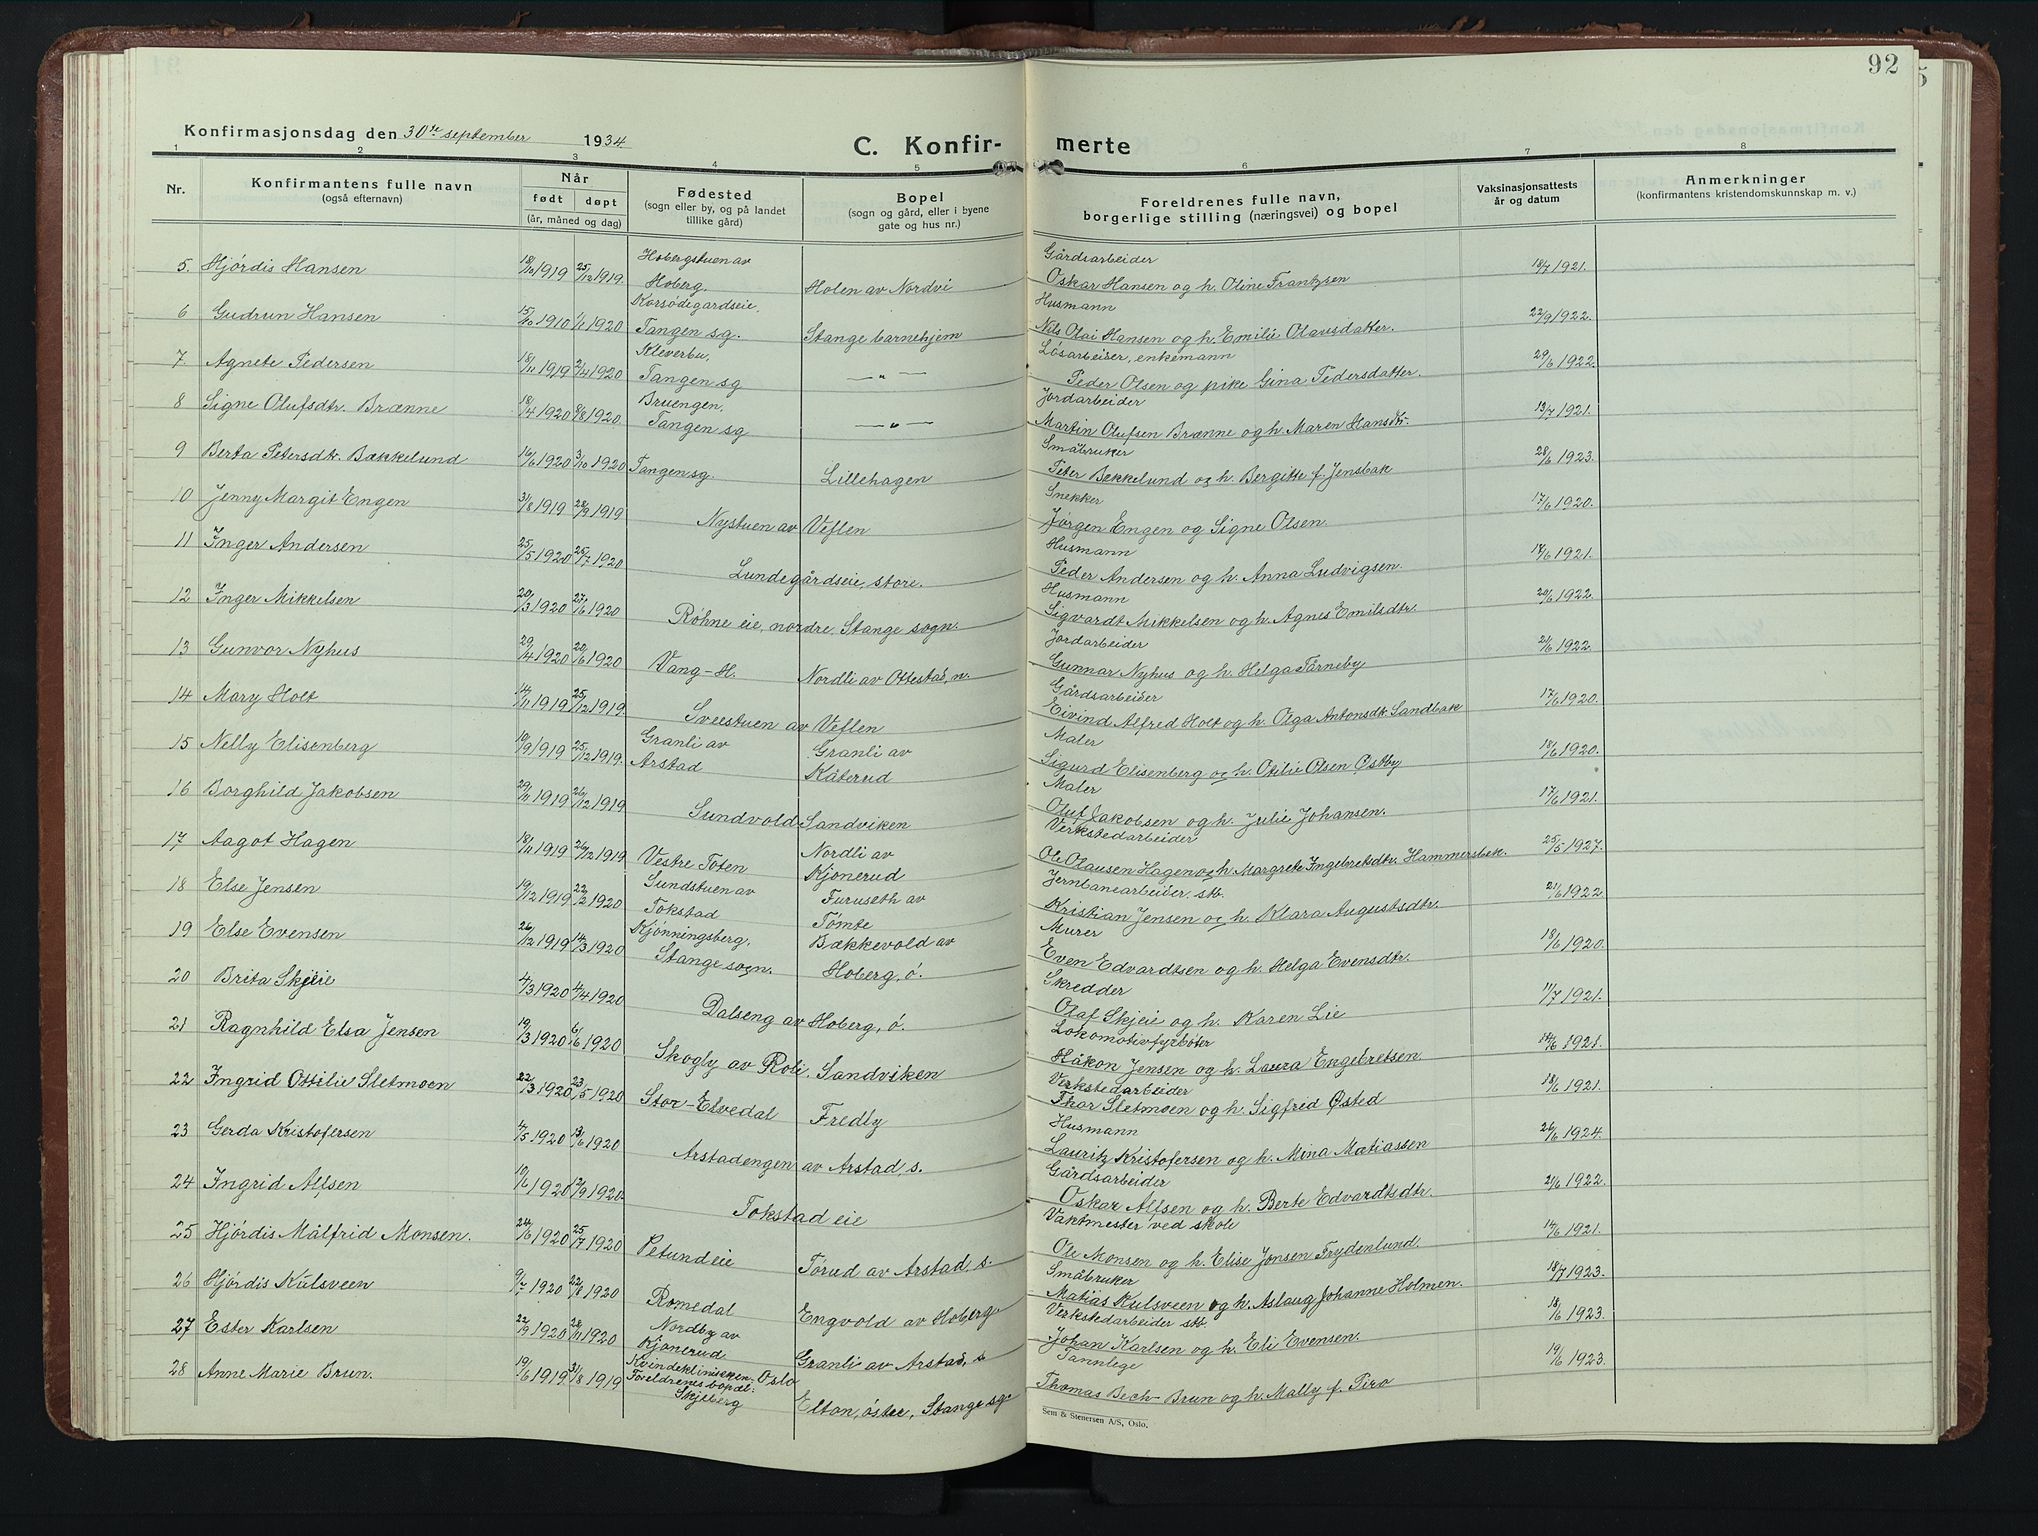 92
Konfirmasjonsdag den 30te september 1934
C. Konfirmerte
1 2 3 4 5 6 7 8
Nr.
Konfirmantens fulle navn
(også efternavn)
Når
født døpt
(år, måned og dag)
Fødested
(sogn eller by, og på landet
tillike gård)
Bopel
(sogn og gård, eller i byene
gate og hus nr.)
Foreldrenes fulle navn,
borgerlige stilling (næringsvei) og bopel
Vaksinasjonsattests
år og datum
Anmerkninger
(konfirmantens kristendomskunnskap m. v.)
5. Hjørdis Hansen 18/12 1919 25/12 1919. Hobergstuen av Hoberg. Holen av Nordvi Gårdsarbeider Oskar Hansen og h. Oline Frantzsen 18/7 1921.
6 Gudrun Hansen 15/10 1910 1/1 1920 Korsødegardseie, Tangen sg. Stange barnehjem Husmann Nils Olai Hansen og h. Emilie Olausdatter. 22/9 1922.
7. Agnete Pedersen 18/11 1919 2/4 1920 Kleverbu, Tangen sg — " — Løsarbeiser, enkemann Peder Olsen og pike Gina Pedersdatter. 29/6 1922.
8 Signe Olufsdtr. Brænne 18/4 1920 8/8 1920. Bruengen, Tangen sg — " — Jordarbeider Martin Olufsen Brænne og h. Maren Hansdtr. 13/7 1921.
9 Berta Petersdtr. Bækkelund 16/6 1920 3/10 1920 Tangen sg. Lillehagen Småbruker Peter Bekkelund og h. Bergitte f. Jensbak 28/6 1923.
10 Jenny Margit Engen 31/8 1919 28/9 1919 Nystuen av Veflen Snekker Jørgen Engen og Signe Olsen. 17/6 1920.
11 Inger Andersen 25/5 1920 25/7 1920 Lundegårdseie, store. Husmann Peder Andersen og h. Anna Ludvigsen. 17/6 1921.
12 Inger Mikkelsen 20/3 1920 27/6 1920 Røhne eie, nordre, Stange sogn. Husmann Sigvardt Mikkelsen og h. Agnes Emilsdtr. 20/6 1922.
13 Gunvor Nyhus 29/4 1920 20/6 1920 Vang-H. Nordli av Ottestad, n. Jordarbeider Gunnar Nyhus og h. Helga Tårneby 21/6 1922.
14 Mary Holt 14/11 1919 25/12 1919. Sveestuen av Veflen Gårdsarbeider Eivind Alfred Holt og h. Olga Antonsdtr. Sandbak 17/6 1920.
15 Nelly Elisenberg 10/9 1919 25/12 1919. Granli av Arstad Granli av Kåterud Maler Sigurd Elisenberg og h. Otilie Olsen Østby 18/6 1920.
16 Borghild Jakobsen 29/11 1919 26/12 1919 Sundvold Sandviken Maler Oluf Jakobsen og h. Julie Johansen. 17/6 1921.
17 Aagot Hagen 18/11 1919 26/12 1919 Vestre Toten Nordli av Kjonerud Verkstedarbeider Ole Olausen Hagen og h. Margrete Ingebretsdtr. Hammersbak. 25/5 1927.
18 Else Jensen 19/12 1919 22/2 1920 Sundstuen av Tokstad Furuseth av Tomte Jernbanearbeider stb. Kristian Jensen og h. Klara Augustsdtr. 21/6 1922
19 Else Evensen 26/12 1919 14/3 1920 Kjønningsberg, Stange sogn. Bækkevold av Hoberg, ø. Murer Even Edvardtsen og h. Helga Evensdtr. 18/6 1920.
20 Brita Skjeie 4/3 1920 4/4 1920 Dalseng av Hoberg, ø. Skredder Olaf Skjeie og h. Karen Lie 11/7 1921.
21 Ragnhild Elsa Jensen 19/3 1920 6/6 1920 Skogly av Roli. Sandviken Lokomotivfyrbøter Håkon Jensen og h. Laura Engebretsen 14/6 1921.
22 Ingrid Ottilie Sletmoen 22/3 1920 23/5 1920 Stor-Elvedal Fredly Verkstedarbeider Thor Sletmoen og h. Sigfrid Østed 18/6 1921.
23 Gerda Kristofersen 4/5 1920 13/6 1920 Arstadengen av Arstad s. Husmann Lauritz Kristofersen og h. Mina Matiassen 26/6 1924.
24 Ingrid Alfsen 10/6 1920 12/9 1920. Tokstad eie Gårdsarbeider Oskar Alfsen og h. Berte Edvardtsdtr. 21/6 1922.
25 Hjørdis Målfrid Monsen. 24/6 1920 25/7 1920 Petundeie Torud av Arstad s. Vaktmester ved skole Ole Monsen og h. Elise Jensen Frydenlund. 14/6 1921.
26 Hjørdis Kulsveen 9/7 1920 22/8 1920 Romedal Engvold av Hoberg Småbruker Matias Kulsveen og h. Aslaug Johanne Holmen. 18/7 1923.
27 Ester Karlsen 22/9 1920 28/11 1920 Nordby av Kjonerud Granli av Arstad, s Verkstedarbeider stb. Johan Karlsen og h. Eli Evensen. 18/6 1923.
28 Anne Marie Brun. 19/6 1919 31/8 1919 Kvindeklinikken. Oslo Foreldrenes bopel: Skjeberg Elton, østre, Stange sg. Tannlege Thomas Bech-Brun og h. Mally f. Piro 19/6 1923.
Sem & Stenersen A/S, Oslo.